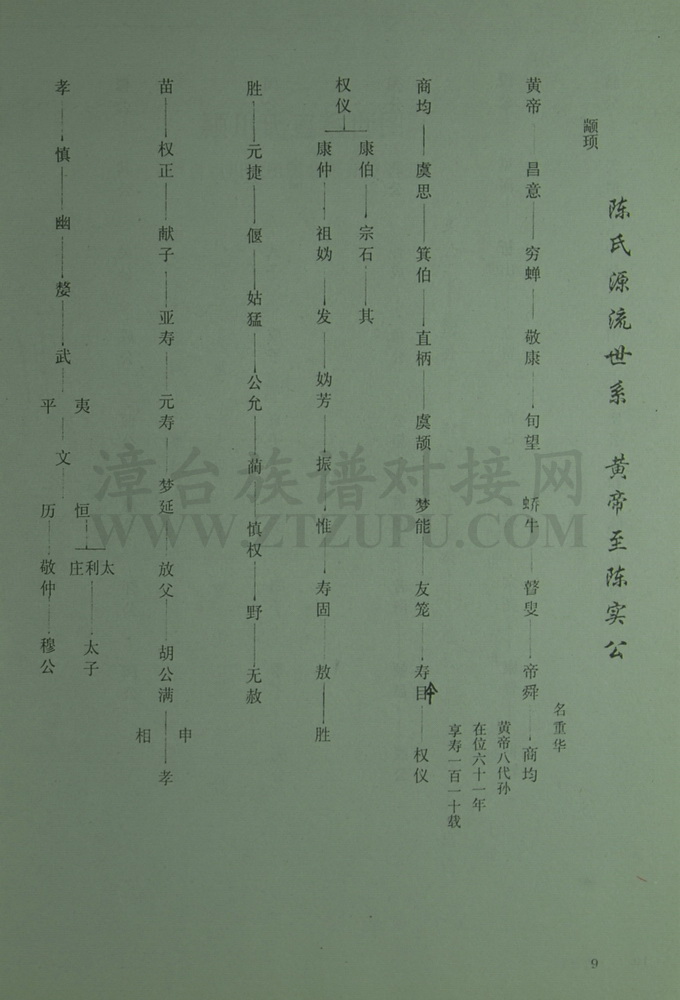 陈氏源流世系 黄帝至陈实公
颛顼
黄帝——昌意——穷蝉——敬康——句望 蛴牛——瞽叟——帝舜——商均
名重华
黄帝八代孙
在位六十一年
享寿一百一十载
商均——虞思——箕伯——直柄——虞颉 梦能——友笼——寿目——权仪
权仪
康伯——宗石——其
康仲——祖妫——发——妫芳——振——惟——寿固——敖——胜
胜——元捷——偃——姑猛——公允——蔺——慎权——野——无赦
苗——权正——献子——亚寿——元寿——梦延——放父——胡公满——孝
申
相
孝——慎——幽——嫠——武——文
夷
平
恒
历——敬仲——穆公
太
利——太子
庄
漳台族谱对接网
WWW.ZTZUPU.COM
9